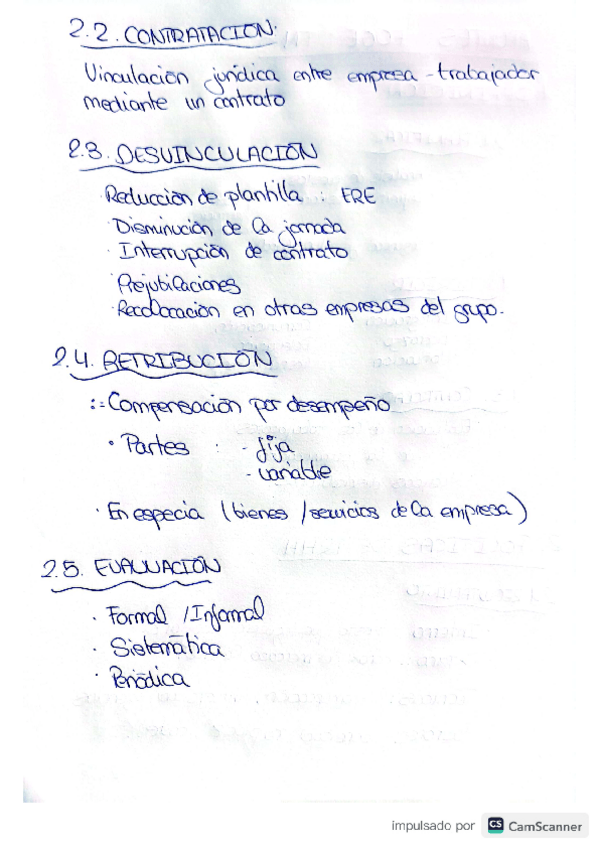 2.2. CONTRATACIÓN.
Vinculación jurídica entre empresa - trabajador
mediante un contrato
2.3. DESVINCULACIÓN
· Reducción de plantilla : ERE
· Disminución de la jornada
· Interrupción de contrato
· Prejubilaciones
· Recolocación en otras empresas del grupo.
2.4. RETRIBUCIÓN
:= Compensación por desempeño
· Partes : - fija
- variable
· En especia (bienes / servicios de la empresa)
2.5. EVALUACIÓN
· Formal / Informal
· Sistemática
· Periódica
impulsado por CS CamScanner